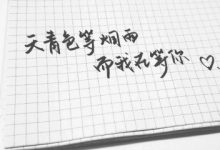 天青色等烟雨
而我在等你♡.